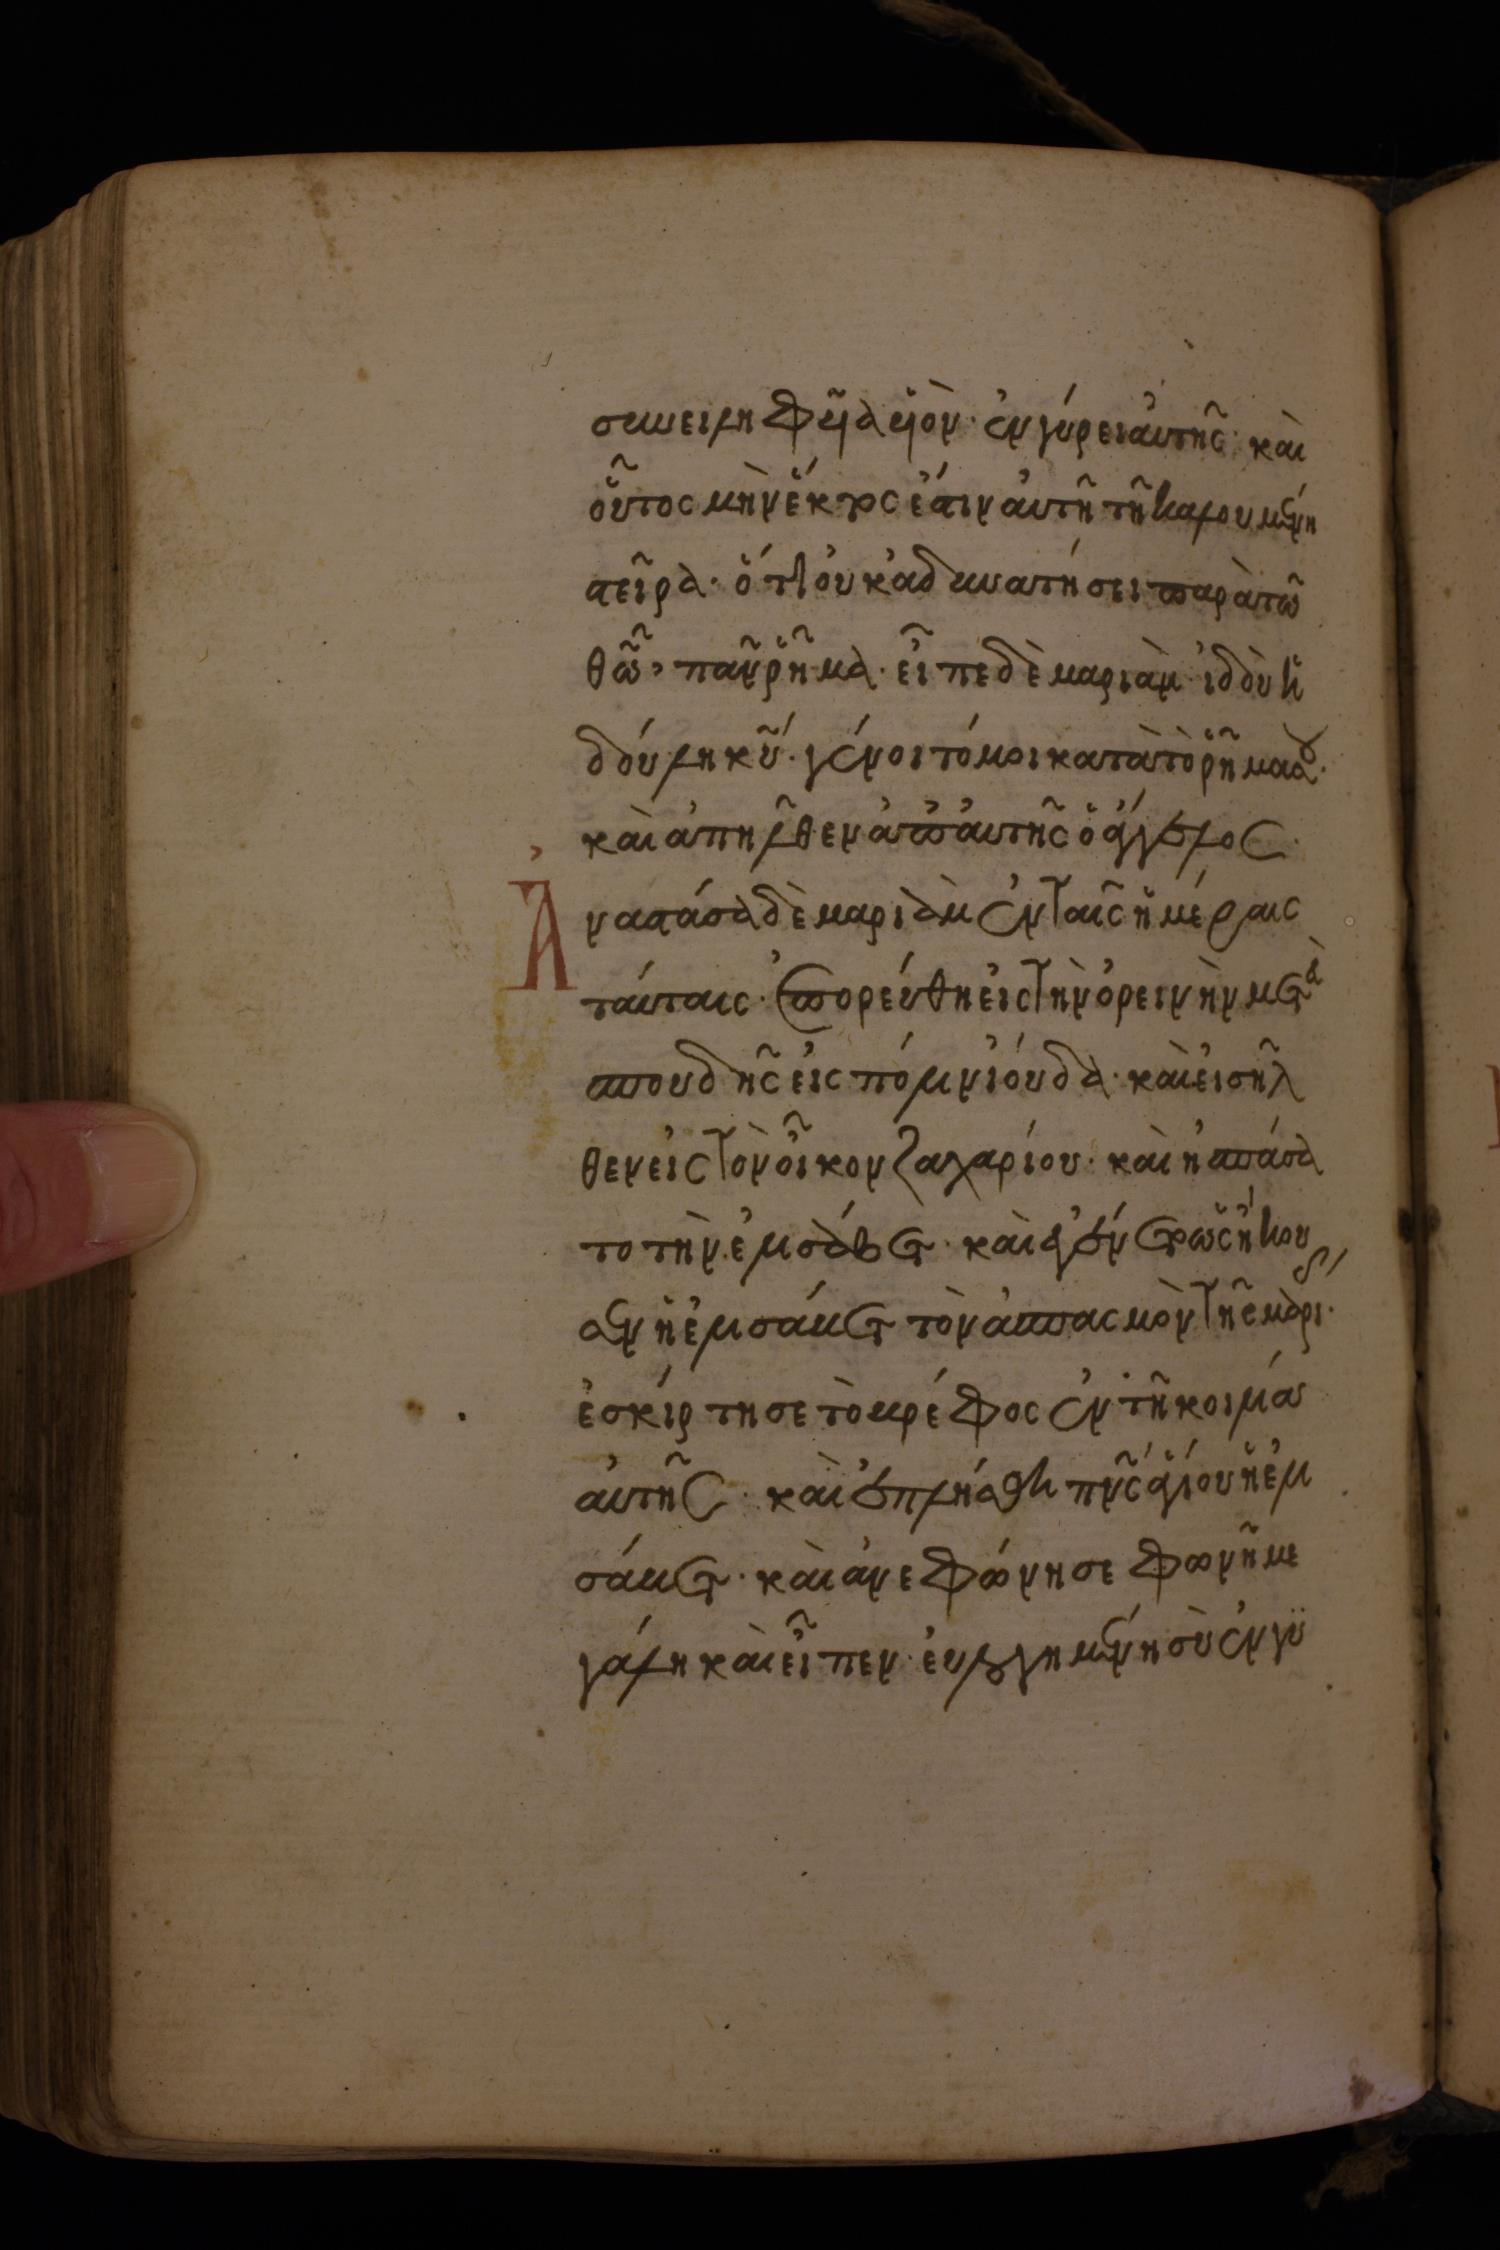 συνειληφῦα υἱὸν ἐν γήρει ἀυτῆς· καὶ
οὗτος μὴν ἕκτος ἐστιν ἀυτῆ τῆ καλουμένη
στεῖρα· ὅτι οὐκ ἀδυνατήσει παρὰ τῶ
θῶ, πᾶν ῥῆμα· εἶπε δὲ μαριὰμ· ἰδοὺ ἡ
δούλη κῦ· γένοιτό μοι κατὰ τὸ ῥῆμα σου·
καὶ ἀπῆλθεν ἀπ' ἀυτῆς ὁ ἄγγελος·
Ἀναστᾶσα δὲ μαριὰμ ἐν ταῖς ἡμέραις
ταύταις· ἐπορεύθη εἰς τὴν ὀρεινὴν μετὰ
σπουδῆς εἰς πόλιν ἰούδα· καὶ εἰσῆλ
θεν εἰς τὸν οἶκον ζαχαρίου· καὶ ἠσπάσα
το τὴν ἐλισάβετ· καὶ ἐγένετο ὡς ἤκου
σεν ἡ ἐλισάβετ τὸν ἀσπασμὸν τῆς μαρίας·
ἐσκίρτησε τὸ βρέφος ἐν τῆ κοιλία
ἀυτῆς· καὶ ἐπλήσθη πνς ἁγίου ἡ ἐλι
σάβετ· καὶ ἀνεφώνησε φωνῆ με
γάλη καὶ εἶπεν· ἐυλογημένη σὺ ἐν γυ